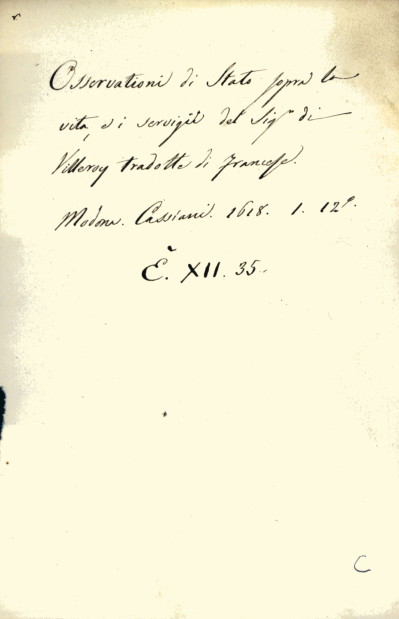 Osservationi di Stato sopra la
vita, e i servigii del Sigr di
Villeroy tradotte di Francese.
Modona. Cassiani. 1618. 1. 12°.
E. XII. 35.
C